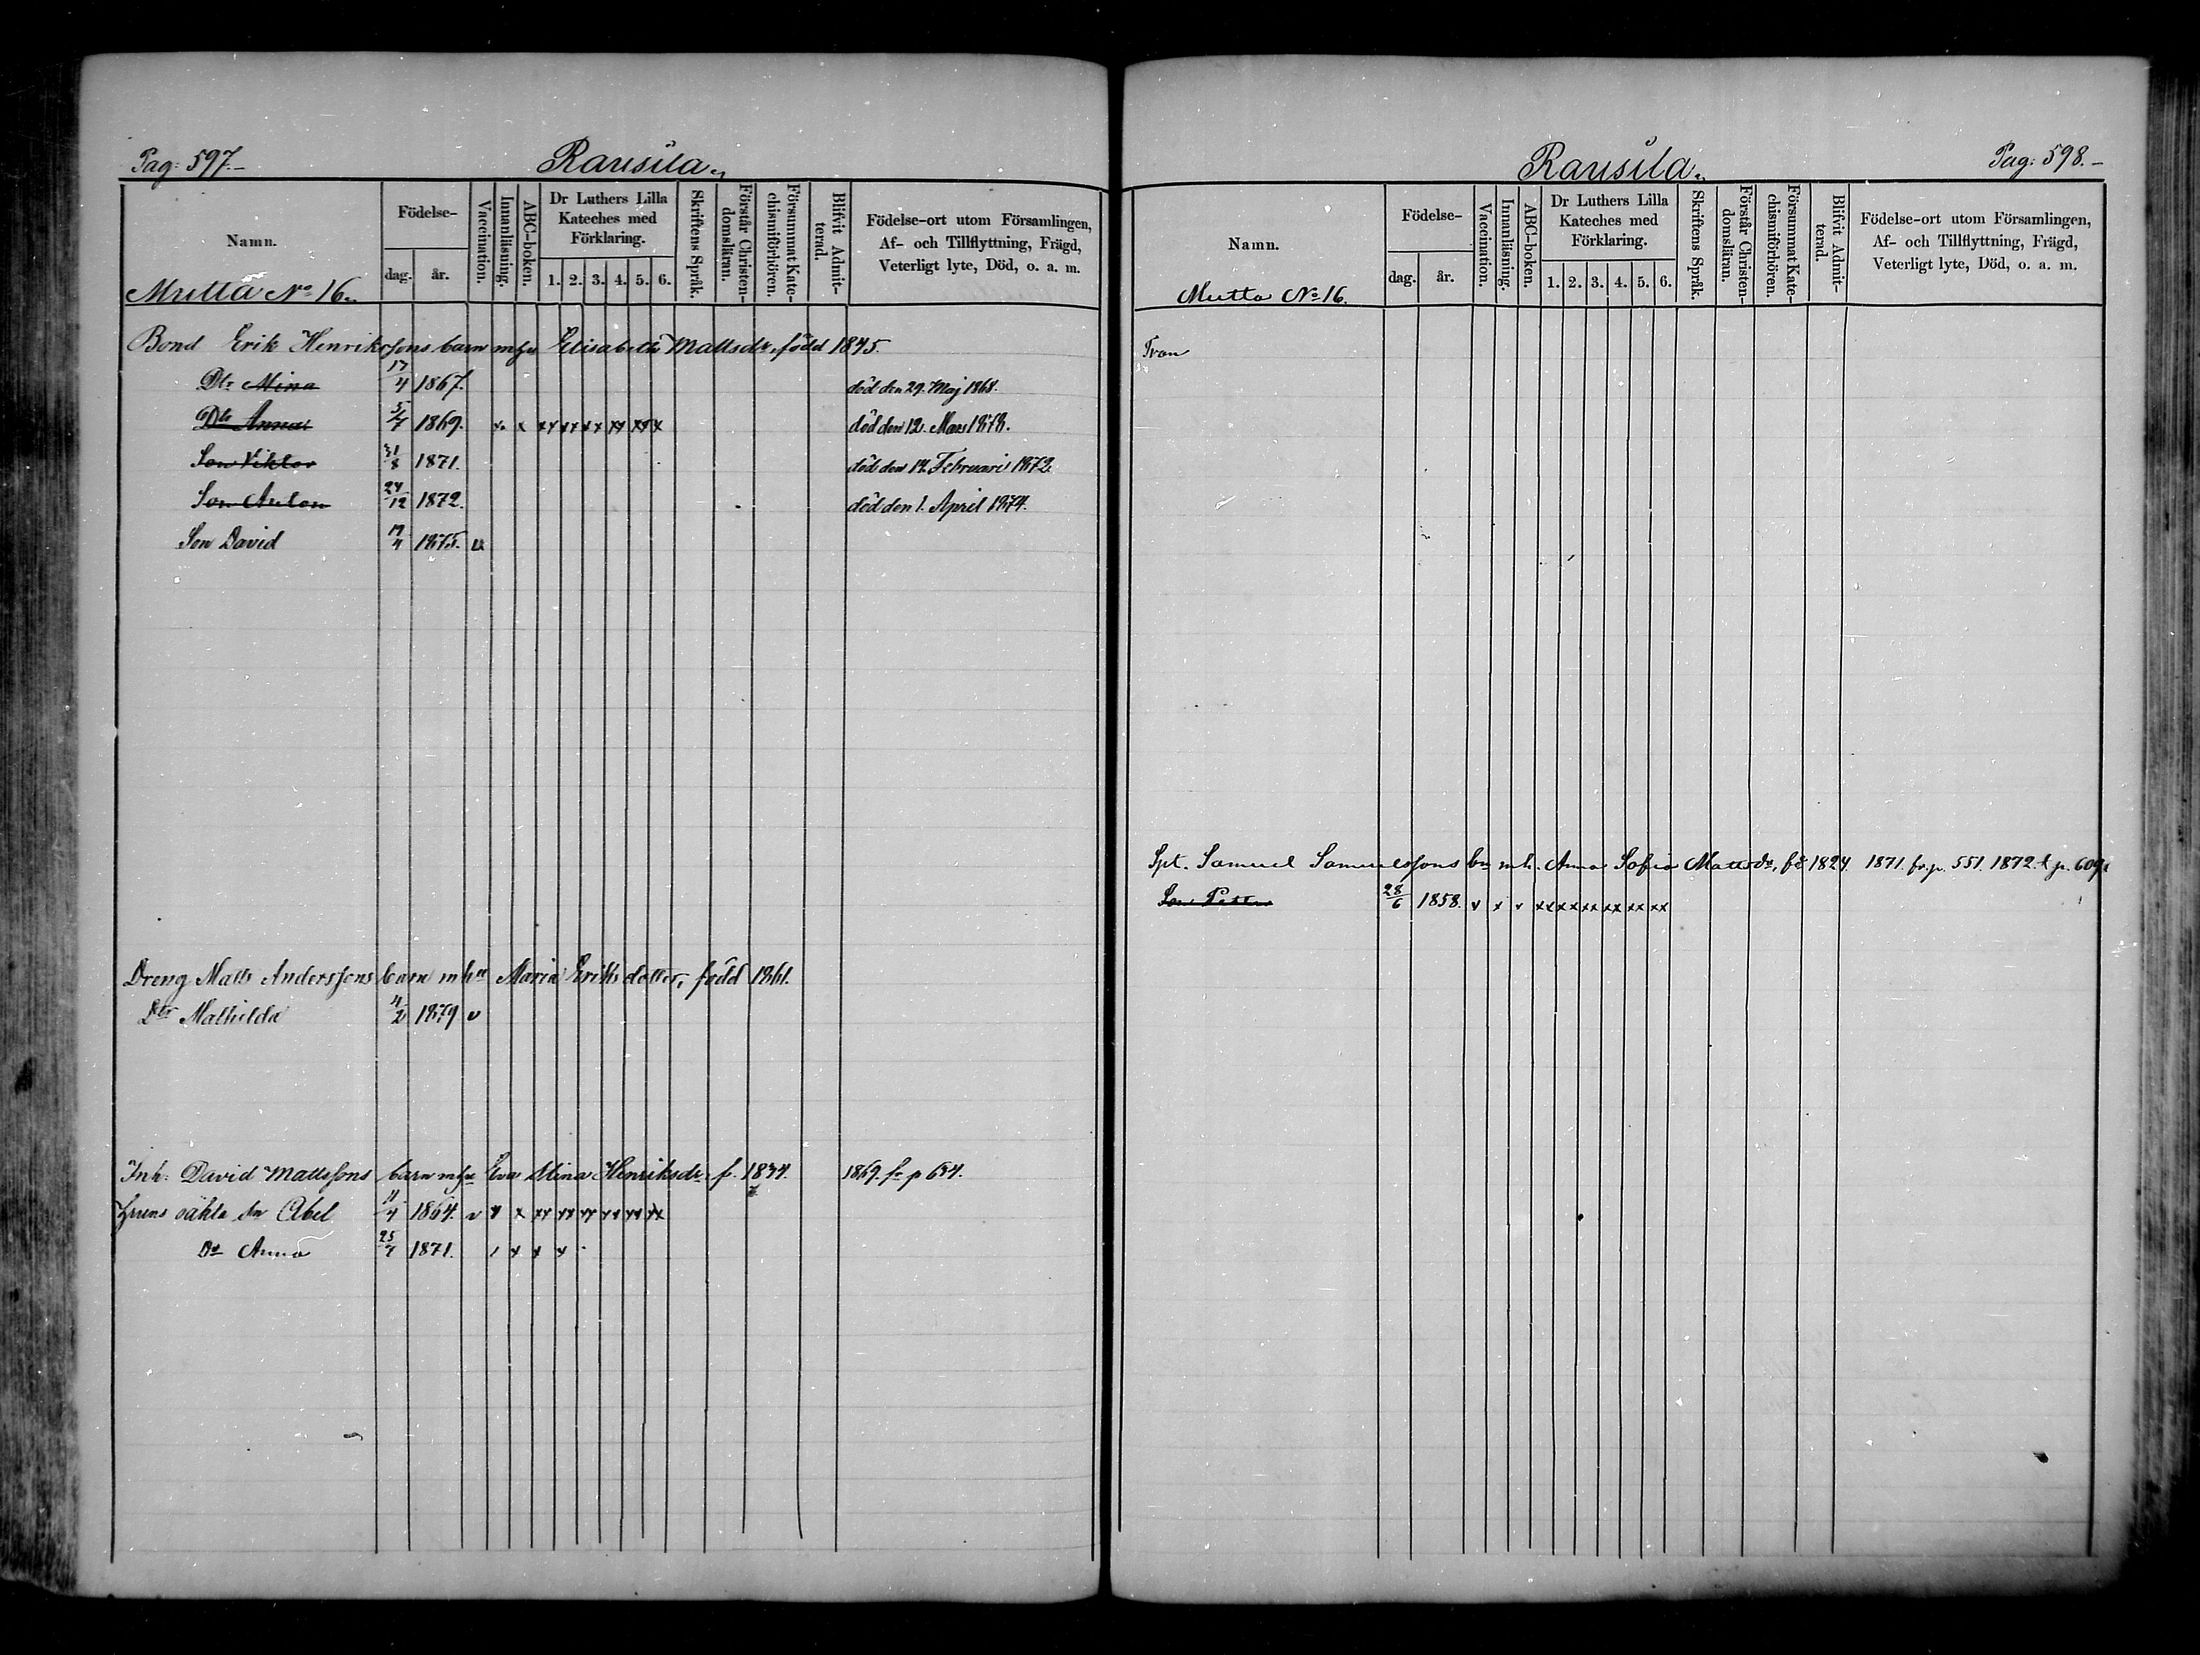 Pag: 597.-
Ransila.
Namn.
Födelse-
dag.
år.
Vaccination.
Innanläsning.
ABC-boken.
Dr Luthers Lilla
Kateches med
Förklaring.
1. 2. 3. 4. 5. 6.
Skriftens Språk.
Förstår Christen-
domsläran.
Försummat Kate-
chismiförhören.
Blifvit Admit-
terad.
Födelse-ort utom Församlingen,
Af- och Tillflyttning, Frägd,
Veterligt lyte, Död, o. a. m.
Mutta No 16.
Bond Erik Henrikssons barn mhu Elisabeth Mattsdr, född 1845.
Dtr Mina 17/4 1867. död den 29. Maj 1868.
Dtr Anna 5/7 1869. x x xx xx xx xx xx x död den 12. Mars 1878.
Son Viktor 31/8 1871. död den 12. Februari 1872.
Son Anton 24/12 1872. död den 1. April 1874.
Son David 1875. v
Dreng Matts Anderssons barn mhu Maria Eriksdotter, född 1861.
Dtr Mathilda 4/2 1879 v
Inh: David Mattssons barn mhu Eva Mina Henriksdr f. 1834. 1869. fr p 634.
oäkta Abel 11/4 1864. v x x xx xx xx xx xx xx
Dr Anna 25/7 1871. / x x x
Pag: 598.-
Ransila.
Namn.
Födelse-
dag.
år.
Vaccination.
Innanläsning.
ABC-boken.
Dr Luthers Lilla
Kateches med
Förklaring.
1. 2. 3. 4. 5. 6.
Skriftens Språk.
Förstår Christen-
domsläran.
Försummat Kate-
chismiförhören.
Blifvit Admit-
terad.
Födelse-ort utom Församlingen,
Af- och Tillflyttning, Frägd,
Veterligt lyte, Död, o. a. m.
Mutta No 16.
Spt. Samuel Samuelssons bn mh. Anna Sofia Mattsdr, fd 1824. 1871. fr. p. 551. 1872. t p. 609.
Son 28/6 1858. v x v xx xx xx xx xx xx